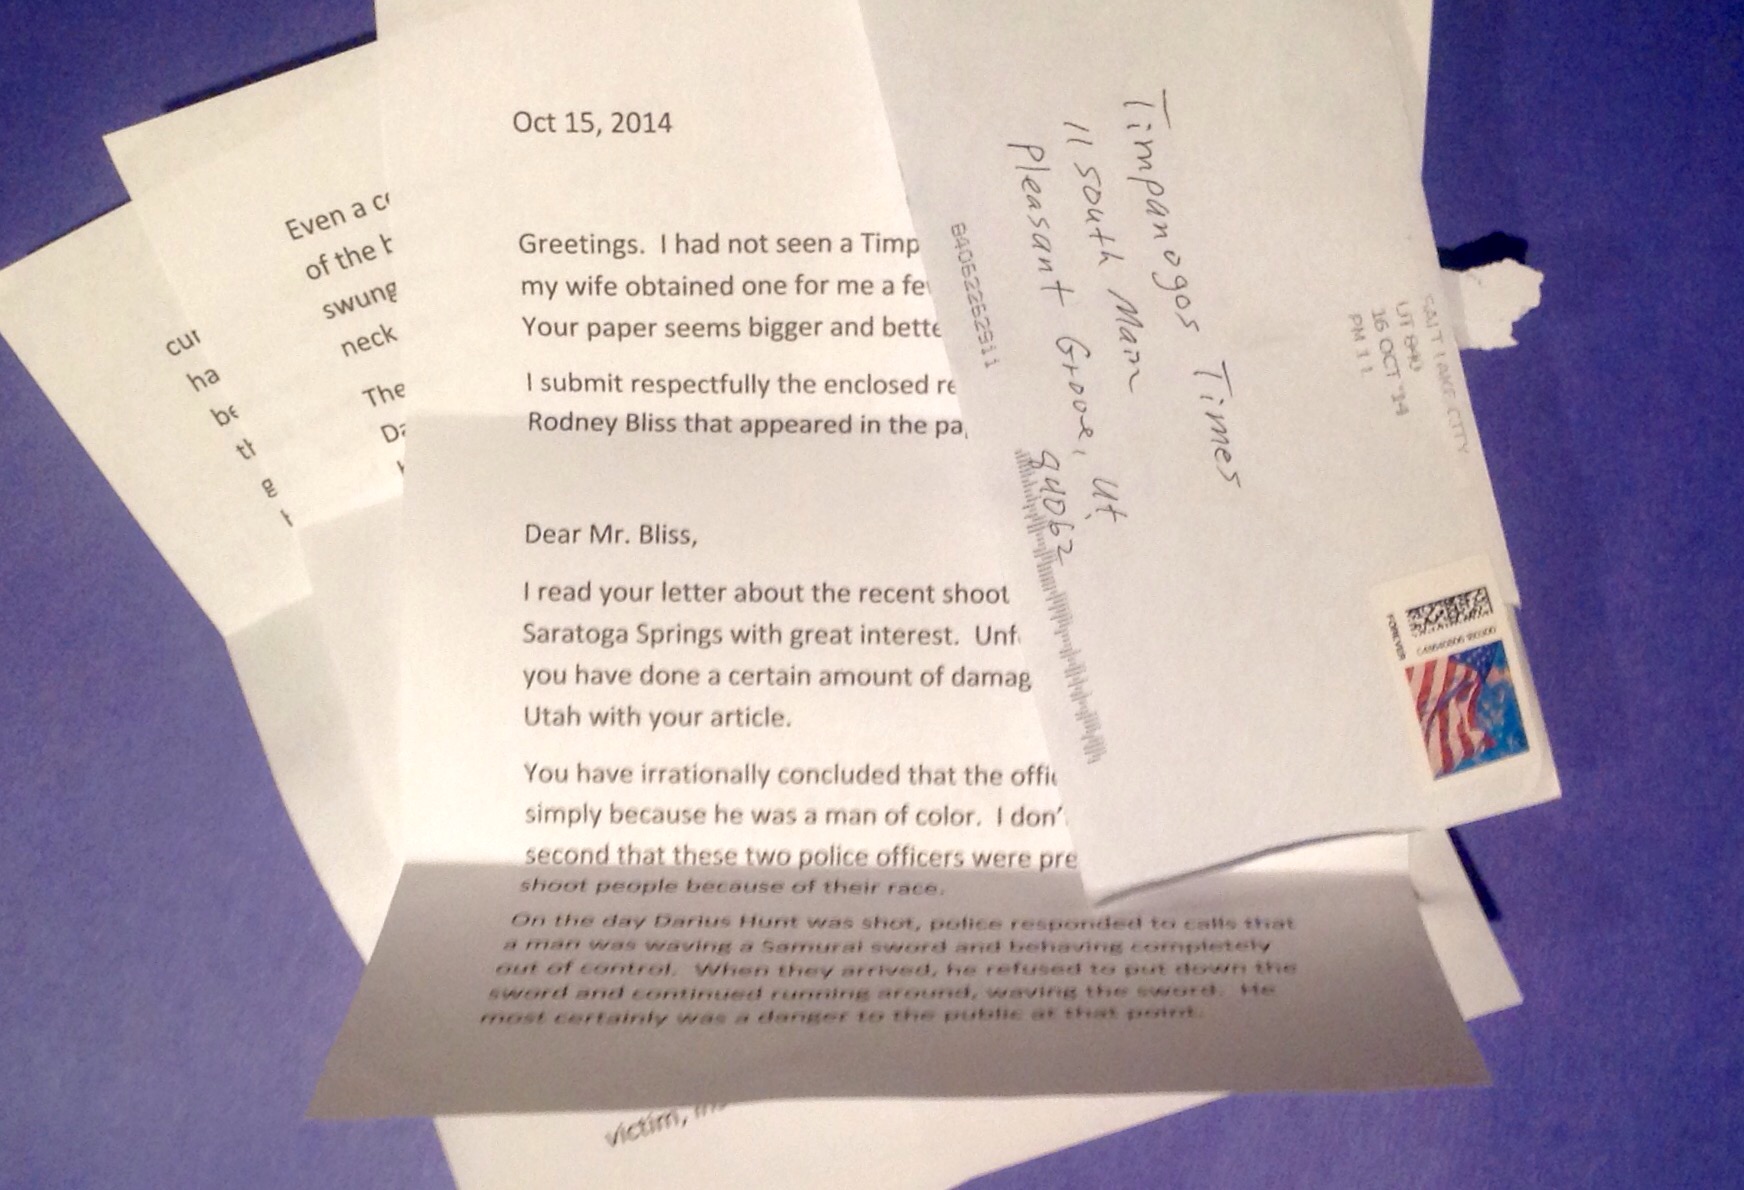 Oct 15, 2014
Greetings. I had not seen a Timp
my wife obtained one for me a fe
Your paper seems bigger and bette
I submit respectfully the enclosed re
Rodney Bliss that appeared in the pa
Dear Mr. Bliss,
I read your letter about the recent shoot
Saratoga Springs with great interest. Unf
you have done a certain amount of damag
Utah with your article.
You have irrationally concluded that the offic
simply because he was a man of color. I don'
second that these two police officers were pre
shoot people because of their race.
On the day Darius Hunt was shot, police responded to calls that
a man was waving a Samurai sword and behaving completely
out of control. When they arrived, he refused to put down the
sword and continued running around, waving the sword. He
most certainly was a danger to the public at that point.
Even a c
of the b
swung
neck
The
Da
cur
ha
be
th
g
victim,
Timpanogos Times
11 South Main
Pleasant Grove, Ut
84062
84062252911
SALT LAKE CITY
UT 840
16 OCT '14
PM 11
FOREVER